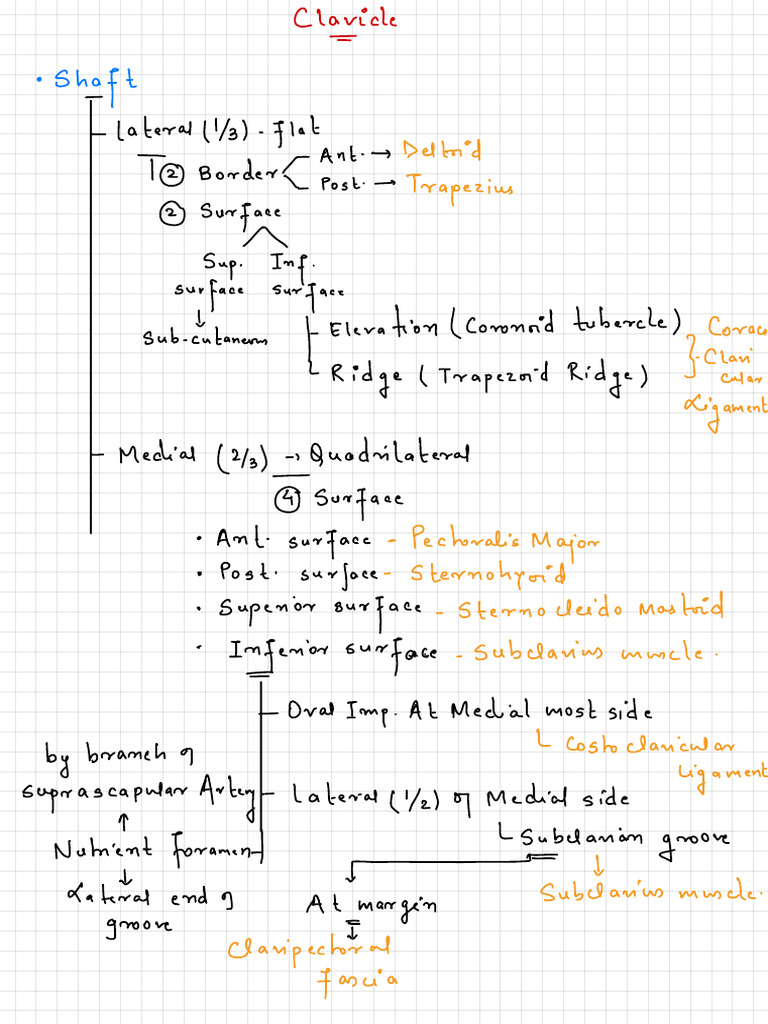 Clavicle
• Shaft
Lateral (1/3) - flat
② Border
Ant. → Deltoid
Post. → Trapezius
② Surface
Sup. surface
↓
Sub-cutaneous
Inf. surface
Elevation (Coronoid tubercle)
Ridge (Trapezoid Ridge)
} Coraco
- Clavi
cular
Ligament
Medial (2/3) → Quadrilateral
④ Surface
• Ant. surface - Pectoralis Major
• Post. surface - Sternohyoid
• Superior surface - Sternocleido Mastoid
• Inferior surface - Subclavius muscle.
Oval Imp. At Medial most side
Costoclavicular
Ligament
Lateral (1/2) of Medial side
Subclavian groove
↓
Subclavius muscle.
At margin
↓
Clavipectoral
fascia
by branch of
suprascapular Artery
↑
Nutrient foramen
↓
Lateral end of
groove